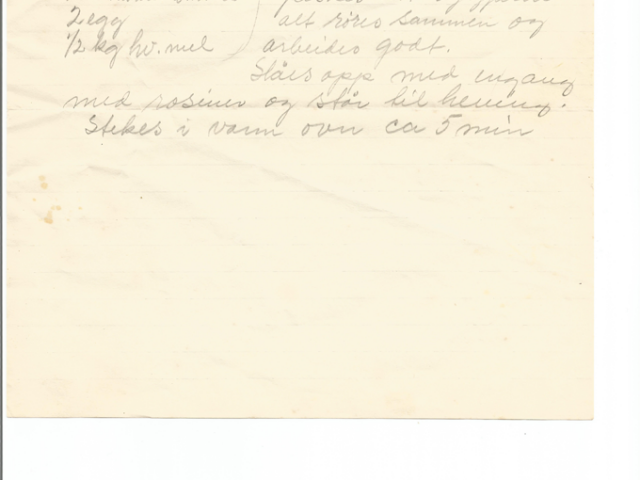 2 egg alt røres sammen og
1/2 kg hv. mel arbeides godt.
Slåes opp med ingang
med rosiner og står til hevning.
Stekes i varm ovn ca 5 min